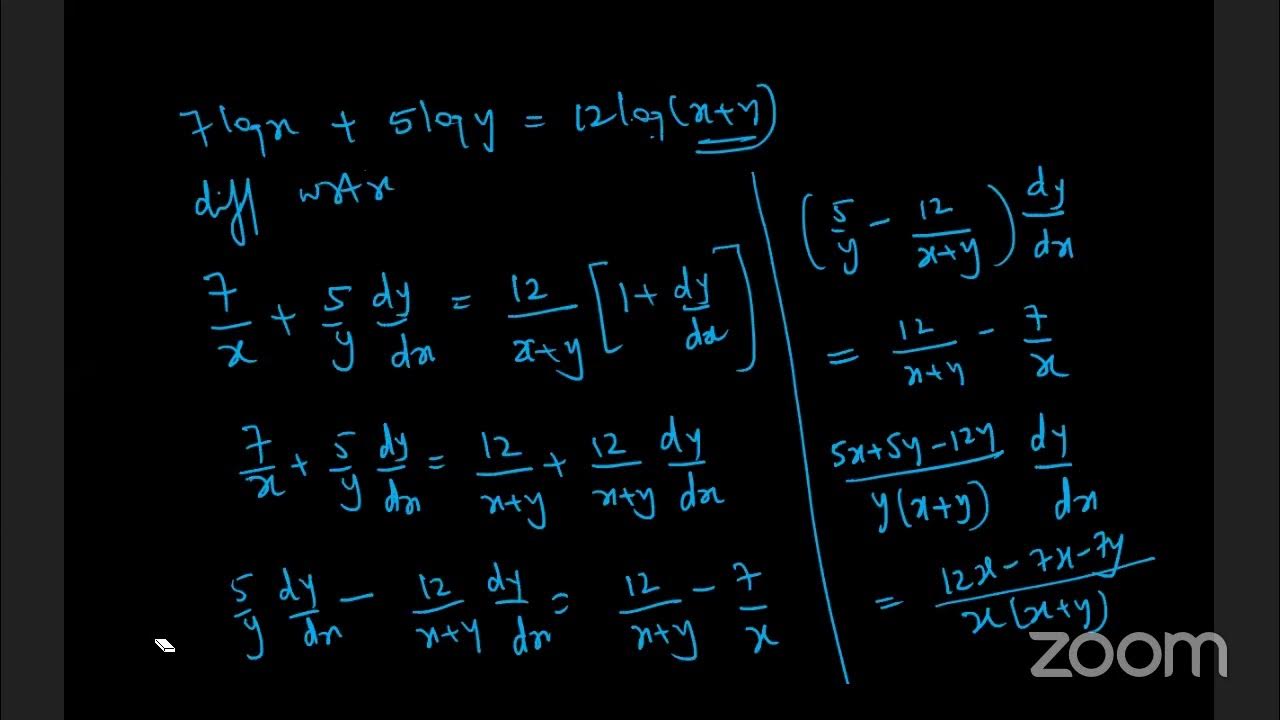 7logx + 5logy = 12log(x+y)
diff wrt x
7/x + 5/y dy/dx = 12/(x+y) [1 + dy/dx]
7/x + 5/y dy/dx = 12/(x+y) + 12/(x+y) dy/dx
5/y dy/dx - 12/(x+y) dy/dx = 12/(x+y) - 7/x
(5/y - 12/(x+y)) dy/dx
= 12/(x+y) - 7/x
(5x+5y-12y)/(y(x+y)) dy/dx
= (12x-7x-7y)/(x(x+y))
zoom